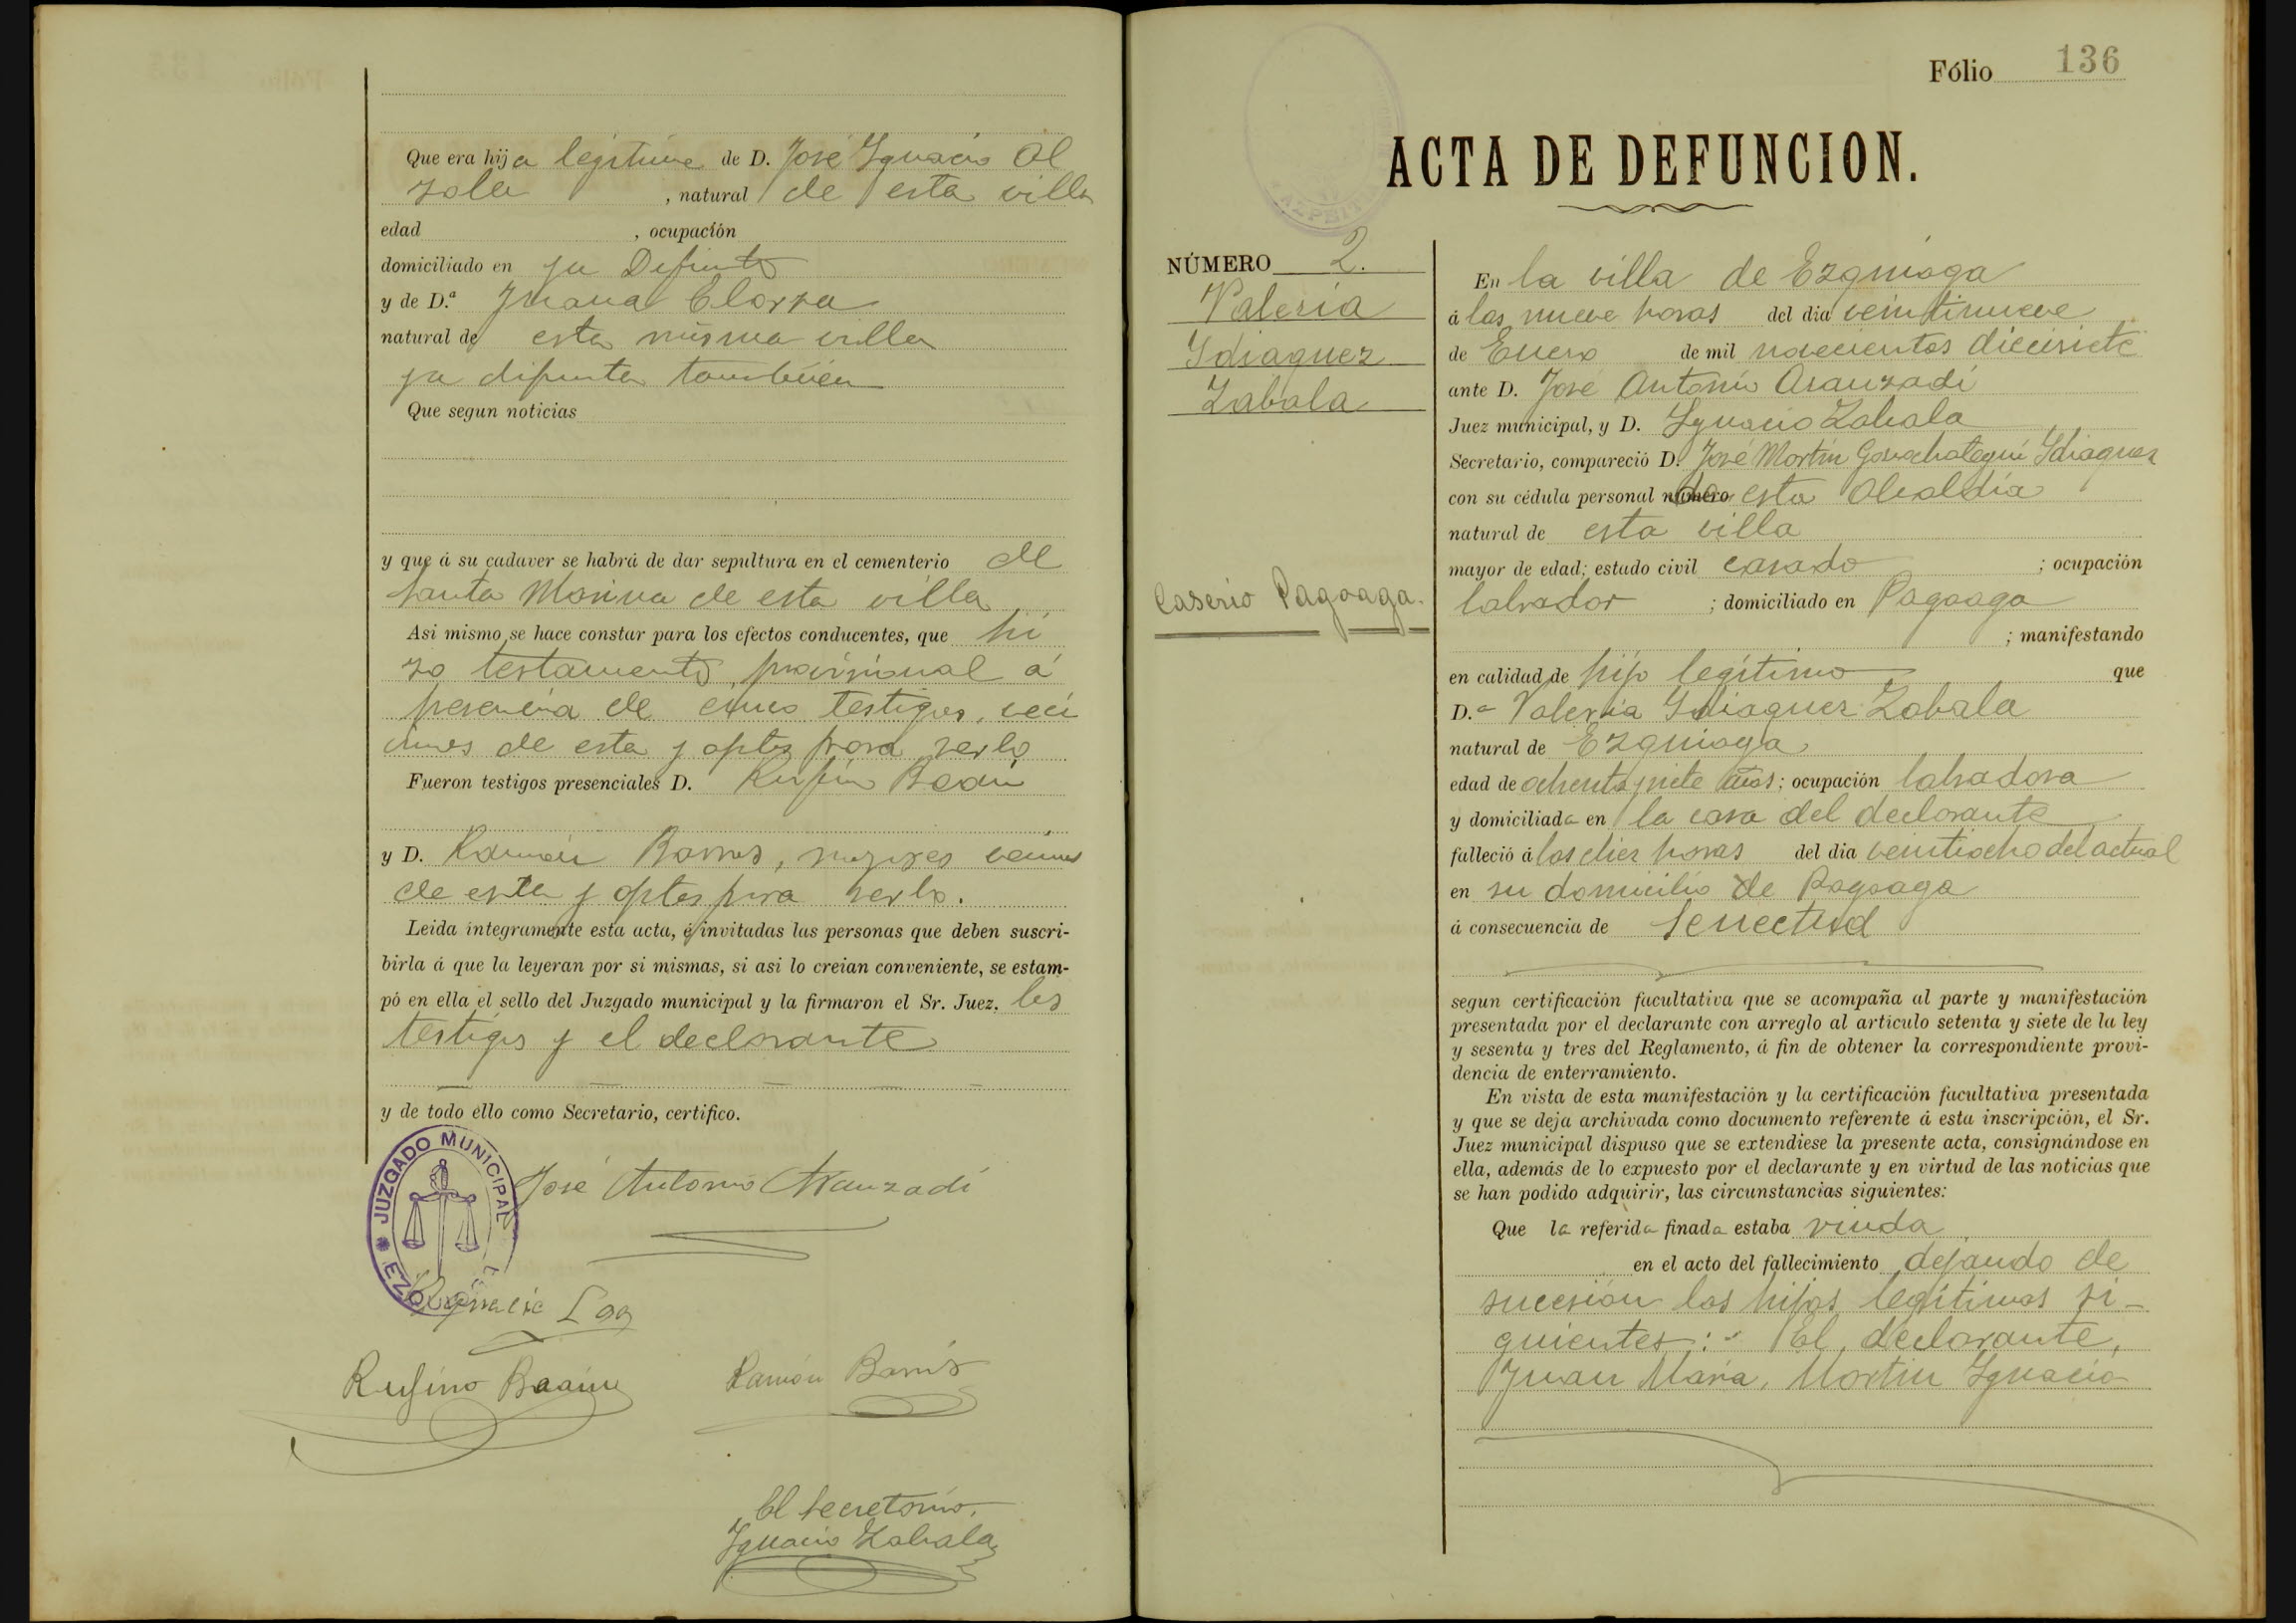 Que era hija legitima de D. José Ignacio Al
zola, natural de esta villa
edad , ocupación
domiciliado en ya Difunto
y de D.ª Juana Elorza
natural de esta misma villa
ya difunta tambien
Que segun noticias
y que á su cadaver se habrá de dar sepultura en el cementerio de
Santa Marina de esta villa
Asi mismo se hace constar para los efectos conducentes, que hi
zo testamento provisional á
presencia de cinco testigos, veci
nos de esta y aptos para serlo
Fueron testigos presenciales D. Rufino
y D. Ramón Barrios, mayores vecinos
de esta y aptos para serlo.
Leida integramente esta acta, é invitadas las personas que deben suscri-
birla á que la leyeran por si mismas, si asi lo creian conveniente, se estam-
pó en ella el sello del Juzgado municipal y la firmaron el Sr. Juez. los
testigos y el declarante
y de todo ello como Secretario, certifico.
JUZGADO MUNICIPAL
José Antonio Aranzadi
Rufino
Ramón Barrios
El Secretario,
Ignacio Zabala
Fólio 136
ACTA DE DEFUNCION.
AZPEITIA
NÚMERO 2.
Valeria
Ydiaquez
Zabala
Caserio Pagoaga.
En la villa de Ezquioga
á las nueve horas del dia veintinueve
de Enero de mil novecientos diecisiete
ante D. José Antonio Aranzadi
Juez municipal, y D. Ignacio Zabala
Secretario, compareció D. José Martin Gorrochategui Ydiaquez
con su cédula personal número de esta Alcaldia
natural de esta villa
mayor de edad; estado civil casado ; ocupación
labrador ; domiciliado en Pagoaga
; manifestando
en calidad de hijo legitimo que
D.ª Valeria Ydiaquez Zabala
natural de Ezquioga
edad de ochenta y siete años; ocupación labradora
y domiciliada en la casa del declarante
falleció á las diez horas del dia veintiocho del actual
en su domicilio de Pagoaga
á consecuencia de Senectud
segun certificación facultativa que se acompaña al parte y manifestación
presentada por el declarante con arreglo al articulo setenta y siete de la ley
y sesenta y tres del Reglamento, á fin de obtener la correspondiente provi-
dencia de enterramiento.
En vista de esta manifestación y la certificación facultativa presentada
y que se deja archivada como documento referente á esta inscripción, el Sr.
Juez municipal dispuso que se extendiese la presente acta, consignándose en
ella, además de lo expuesto por el declarante y en virtud de las noticias que
se han podido adquirir, las circunstancias siguientes:
Que la referida finada estaba viuda
en el acto del fallecimiento dejando de
sucesión los hijos legitimos si-
guientes:- El declarante,
Juan Maria, Martin Ignacio